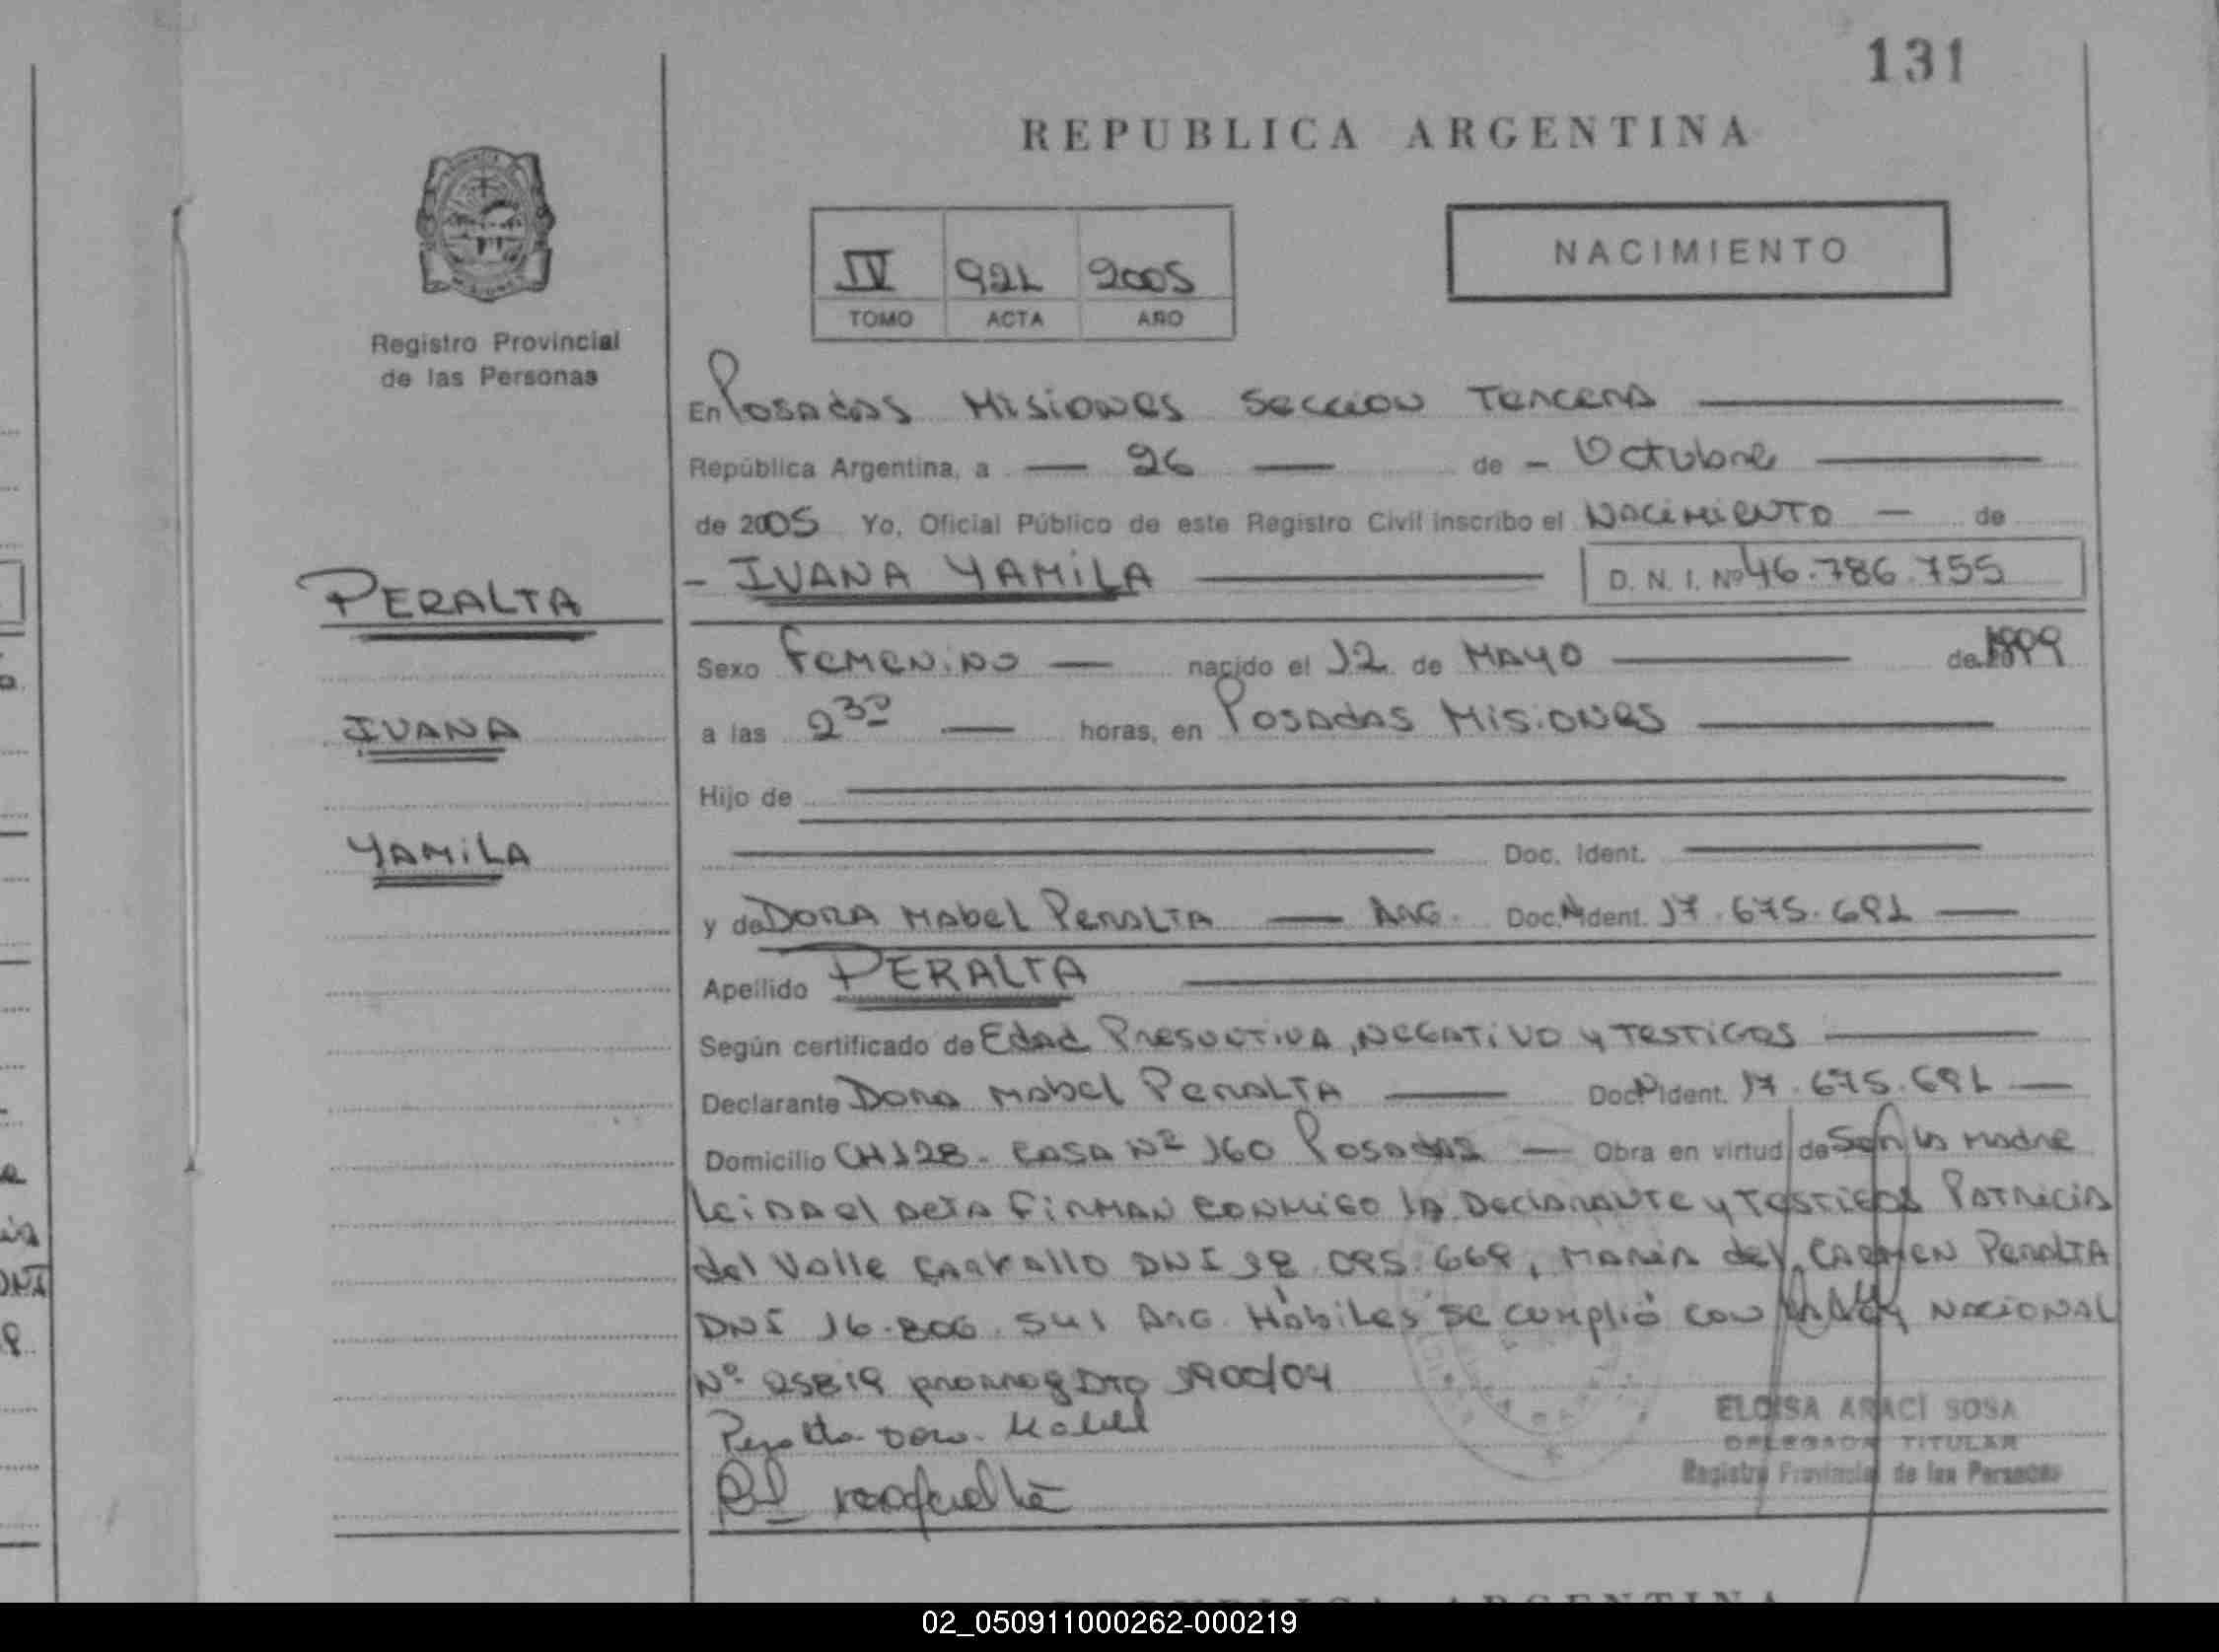 131
REPUBLICA ARGENTINA
NACIMIENTO
IV 921 2005
TOMO ACTA AÑO
Registro Provincial
de las Personas
En Posadas Misiones Seccion Tercera
República Argentina, a 26 de Octubre
de 2005 Yo, Oficial Público de este Registro Civil inscribo el Nacimiento de
IVANA YAMILA D. N. I. Nº 46.786.755
PERALTA
IVANA
YAMILA
Sexo Femenino nacido el 12 de MAYO de
a las 2 30 horas, en Posadas Misiones
Hijo de
Doc. Ident.
y de DORA Mabel Peralta ARG. Doc. Ident. 17.675.691
Apellido PERALTA
Según certificado de Edad Presuntiva, Negativo y Testigos
Declarante Dora Mabel Peralta Doc Ident. 17.675.691
Domicilio CH 128 - CASA Nº 160 Posadas Obra en virtud de Ser la madre
Leida el acta Firman conmigo la Declarante y Testigos Patricia
del Valle DNI 669, Maria del Carmen Peralta
DNI 16.806.541 Arg. Hábiles se cumplió con la Ley Nacional
Nº 25819 prorrog Dto 1900/04
Peralta Dora Mabel
ELOISA ARACI SOSA
DELEGADA TITULAR
Registro Provincial de las Personas
REPUBLICA ARGENTINA
02_050911000262-000219